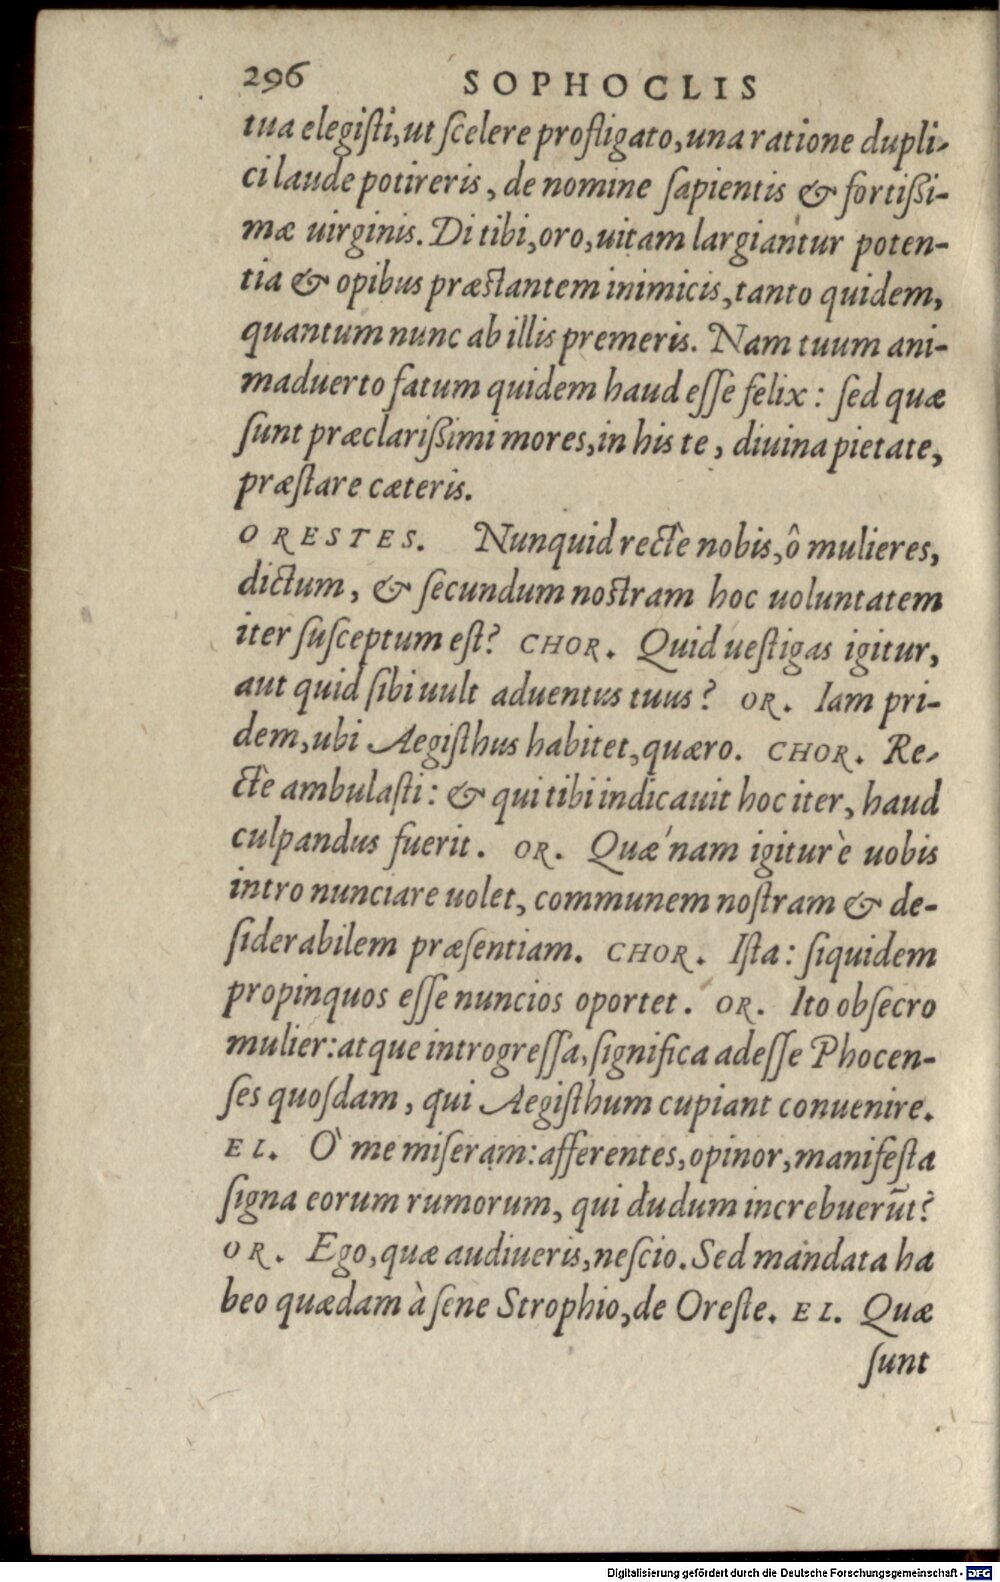 296 SOPHOCLIS
tua elegiſti, ut ſcelere profligato, una ratione dupli-
ci laude potireris, de nomine ſapientis & fortißi-
mæ uirginis. Di tibi, oro, uitam largiantur poten-
tia & opibus præstantem inimicis, tanto quidem,
quantum nunc ab illis premeris. Nam tuum ani-
maduerto fatum quidem haud eſſe felix: ſed quæ
ſunt præclarißimi mores, in his te, diuina pietate,
præſtare cæteris.
ORESTES. Nunquid rectè nobis, ô mulieres,
dictum, & ſecundum nostram hoc uoluntatem
iter ſuſceptum eſt? CHOR. Quid ueſtigas igitur,
aut quid ſibi uult aduentus tuus? OR. Iam pri-
dem, ubi Aegiſthus habitet, quæro. CHOR. Re-
ctè ambulaſti: & qui tibi indicauit hoc iter, haud
culpandus fuerit. OR. Quæ'nam igitur è uobis
intro nunciare uolet, communem noſtram & de-
ſiderabilem præſentiam. CHOR. Iſta: ſiquidem
propinquos eſſe nuncios oportet. OR. Ito obſecro
mulier: atque introgreſſa, ſignifica adeſſe Phocen-
ſes quoſdam, qui Aegiſthum cupiant conuenire.
EL. Ò me miſeram: afferentes, opinor, manifeſta
ſigna eorum rumorum, qui dudum increbuerūt?
OR. Ego, quæ audiueris, neſcio. Sed mandata ha
beo quædam à ſene Strophio, de Oreſte. EL. Quæ
ſunt
Digitalisierung gefördert durch die Deutsche Forschungsgemeinschaft - DFG